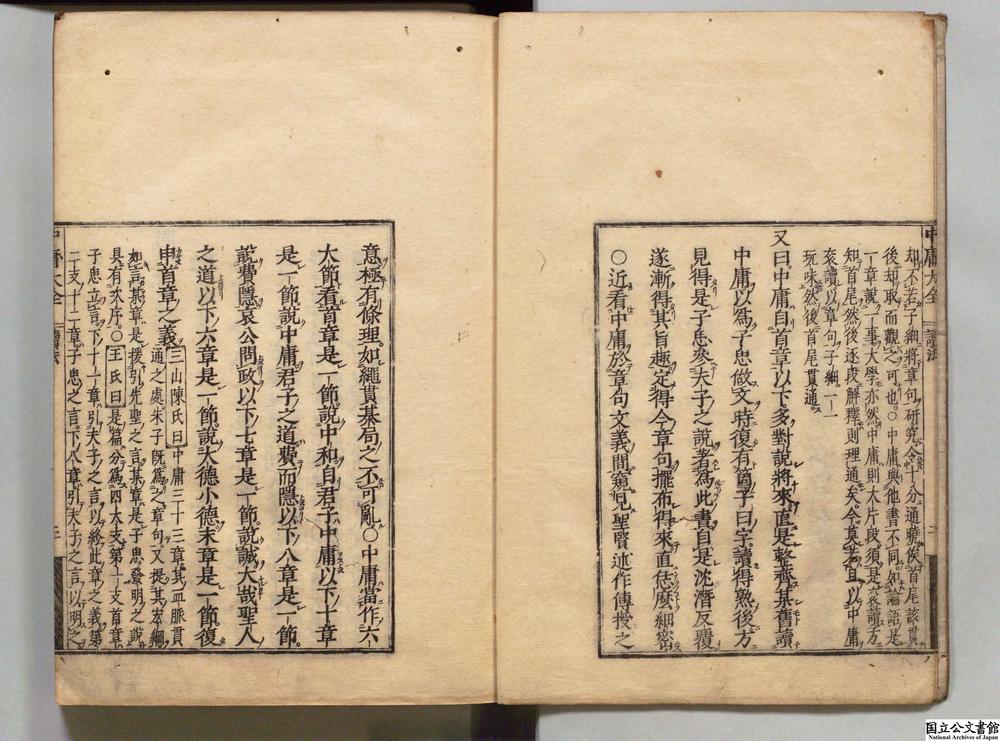 中庸大全 讀法 二
却不若子細將章句研究令十分通曉俟首尾該貫
後却取而觀之可也○中庸與他書不同如論語是
一章說一事大學亦然中庸則大片段須是袞讀方
知首尾然後逐段解釋則理通矣今莫若且以中庸
袞讀以章句子細一一
玩味然後首尾貫通
又曰中庸自首章以下多對說將來直是整齊某舊讀
中庸以爲子思做文時復有箇子曰字讀得熟後方
見得是子思參夫子之說著爲此書自是沈潛反覆
遂漸得其旨趣定得今章句擺布得來直恁麼細密
○近看中庸於章句文義間窺見聖賢述作傳授之
意極有條理如繩貫棊局之不可亂○中庸當作六
大節看首章是一節說中和自君子中庸以下十章
是一節說中庸君子之道費而隱以下八章是一節
說費隱哀公問政以下七章是一節說誠大哉聖人
之道以下六章是一節說大德小德末章是一節復
申首章之義
三山陳氏曰中庸三十三章其血脈貫
通之處朱子旣爲之章句又提其宏綱
如言某章是援引先聖之言某章是子思發明之說
具有次序○王氏曰是篇分爲四大支第一支首章
子思立言下十一章引夫子之言以終此章之義第
二支十二章子思之言下八章引夫子之言以明之
中庸大全 讀法
国立公文書館
National Archives of Japan